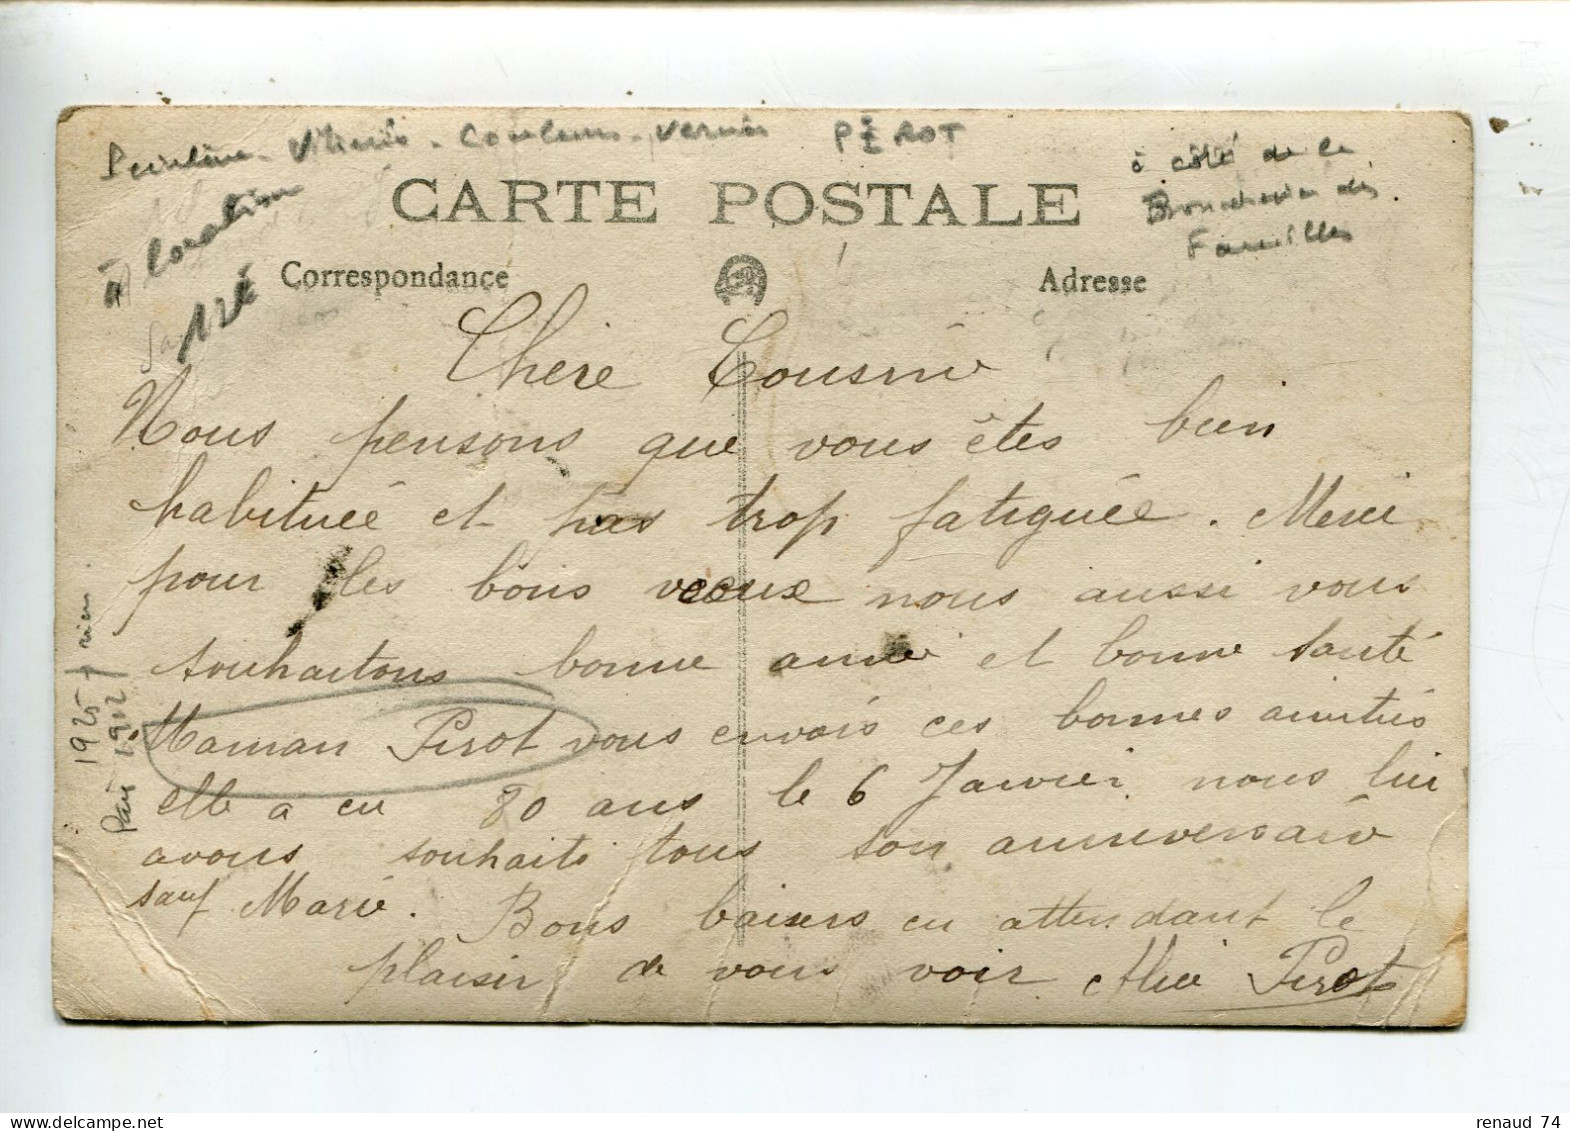 Peinture - Vitrerie - Couleurs - Vernis PEROT
à côté de la
Boucherie des
Familles
à location
CARTE POSTALE
Correspondance
Adresse
Chère Cousine
Nous pensons que vous êtes bien
habituée et pas trop fatiguée. Merci
pour les bons voeux nous aussi vous
souhaitons bonne année et bonne santé
Maman Pirot vous envois ces bonnes amitiés
elle a eu 80 ans le 6 Janvier nous lui
avons souhaité tous son anniversaire
sauf Marie. Bons baisers en attendant le
plaisir de vous voir Alice Pirot
1925 rien
Pas 1912
renaud 74